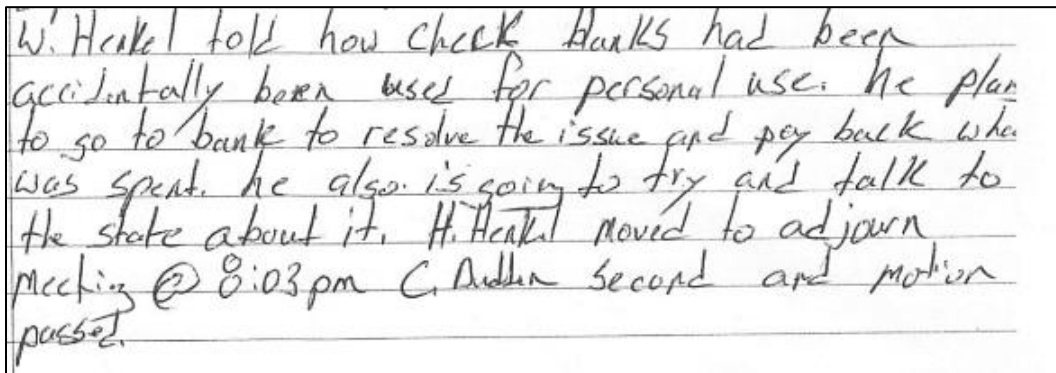 W. Henkel told how check blanks had been
accidentally been used for personal use. he plan
to go to bank to resolve the issue and pay back wha
was spent. he also is going to try and talk to
the state about it. H. Henkel moved to adjourn
meeting @ 8:03 pm C. second and motion
passed.